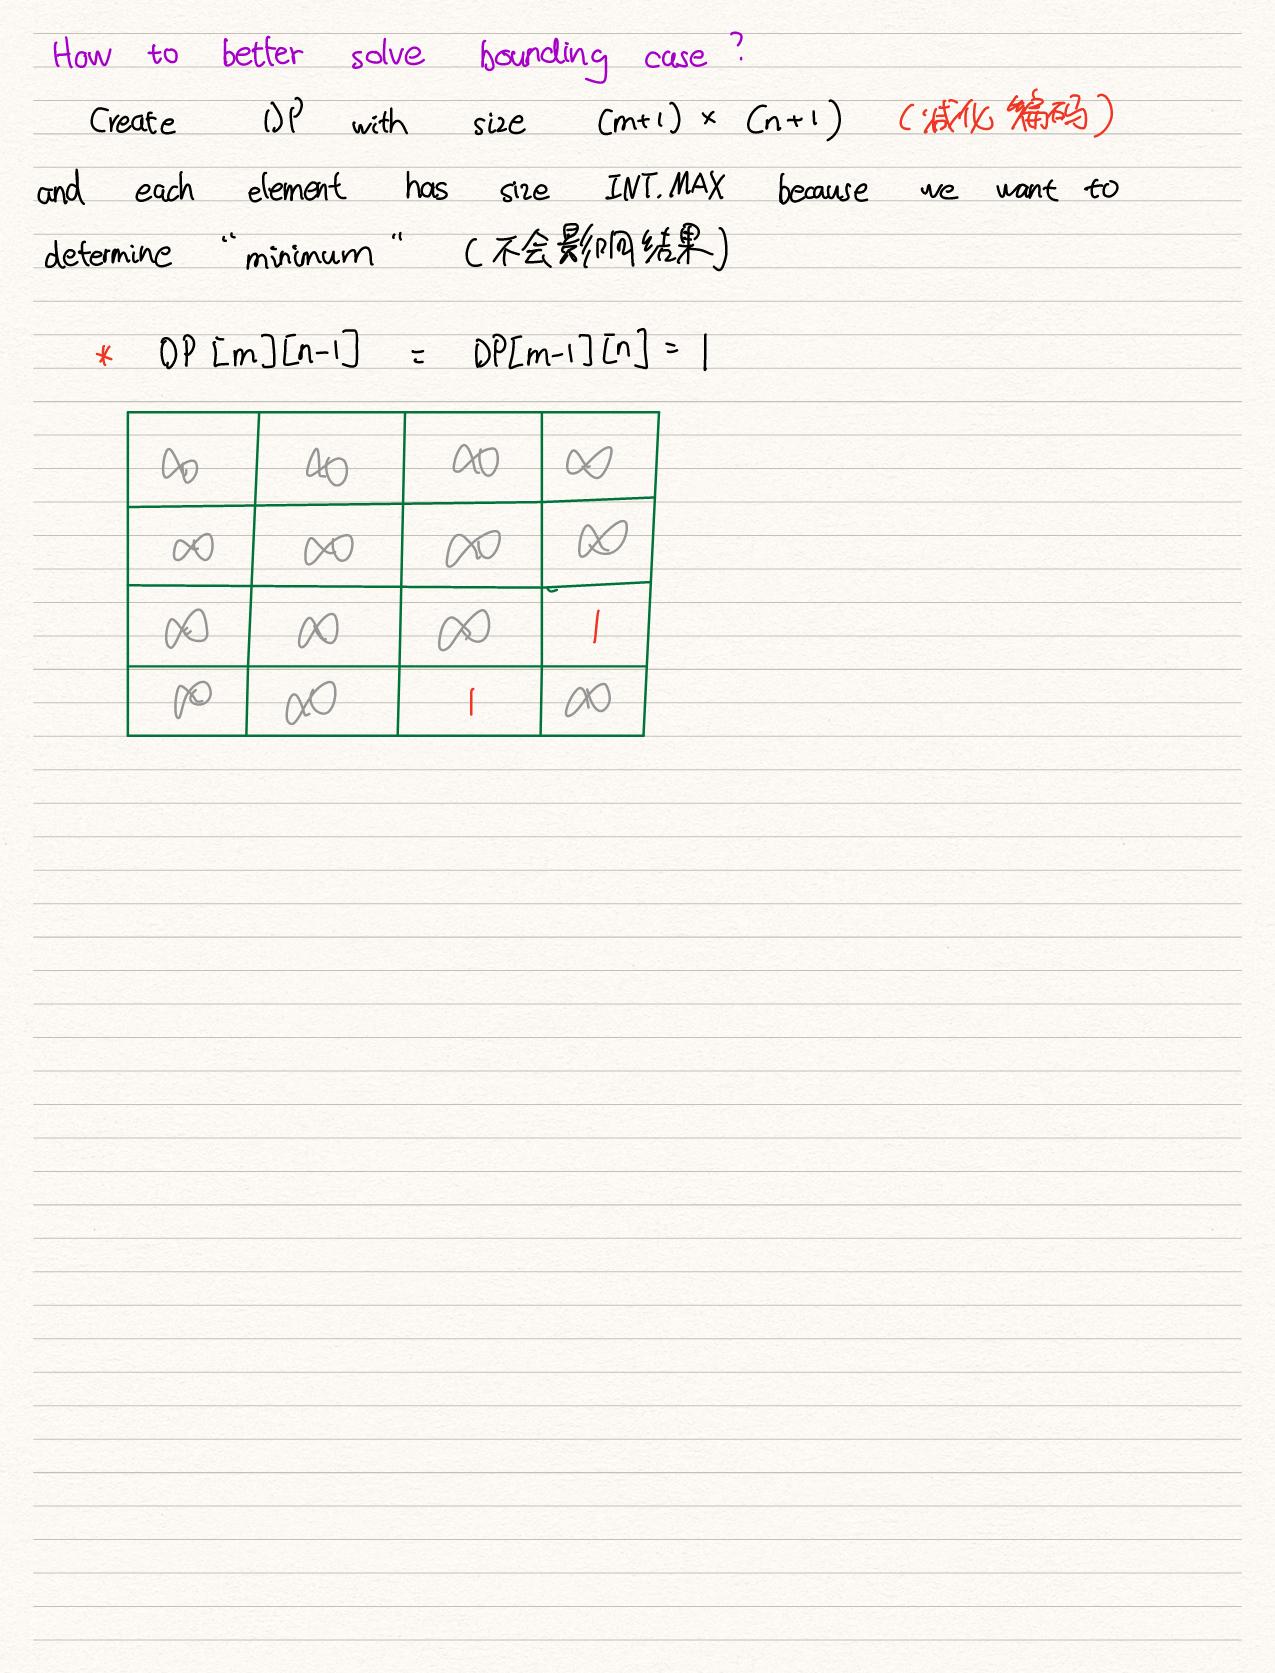 How to better solve bounding case ?
Create DP with size (m+1) × (n+1) (减化编码)
and each element has size INT.MAX because we want to
determine "minimum" (不会影响结果)
* DP[m][n-1] = DP[m-1][n] = 1
∞ ∞ ∞ ∞
∞ ∞ ∞ ∞
∞ ∞ ∞ 1
∞ ∞ 1 ∞